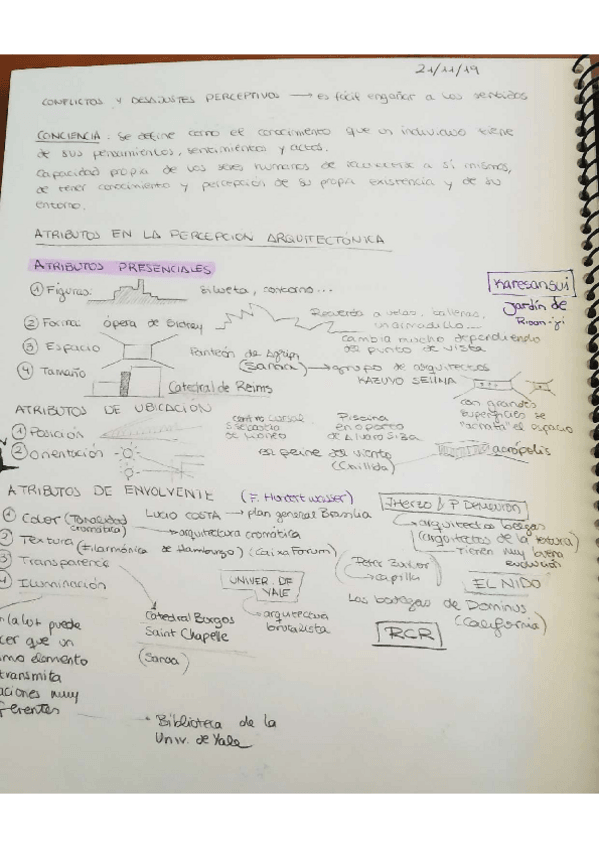 21/11/19
CONFLICTOS Y DESAJUSTES PERCEPTIVOS → es fácil engañar a los sentidos
CONCIENCIA: Se define como el conocimiento que un individuo tiene
de sus pensamientos, sentimientos y actos.
Capacidad propia de los seres humanos de a sí mismos,
de tener conocimiento y percepción de su propia existencia y de su
entorno.
ATRIBUTOS EN LA PERCEPCIÓN ARQUITECTÓNICA
ATRIBUTOS PRESENCIALES
Karesansui
Jardín de
① Figuras: Silueta, contorno...
② Forma: ópera de Sidney
Recuerda a velas, ballenas,
un armadillo....
③ Espacio Panteón de Agripa
cambia mucho dependiendo
del punto de vista
(Sanaa) → grupo de arquitectos
KAZUYO SEJIMA
④ Tamaño Catedral de Reims
con grandes
superficies se
"acorta" el espacio
ATRIBUTOS DE UBICACIÓN
① Posición
centro
de Moneo
Piscina
en oporto
de Alvaro Siza
② orientación
El peine del viento
(Chillida)
acrópolis
ATRIBUTOS DE ENVOLVENTE
(F. Hundertwasser)
① Color (Tonalidad
cromática)
LUCIO COSTA → plan general Brasilia
→ arquitectura cromática
② Textura (Filarmónica de Hamburgo) (CaixaForum)
③ Transparencia
④ Iluminación
→ arquitectos
(arquitectos de la textura)
→ Tienen muy buena
evolución
→ capilla
EL NIDO
UNIVER. DE
YALE
→ arquitectura
brutalista
Las bodegas de Dominus
(California)
RCR
Catedral Burgos
Saint Chapelle
(Sanaa)
puede
que un
mo elemento
transmita
aciones muy
ferentes
→ Biblioteca de la
Univ. de Yale